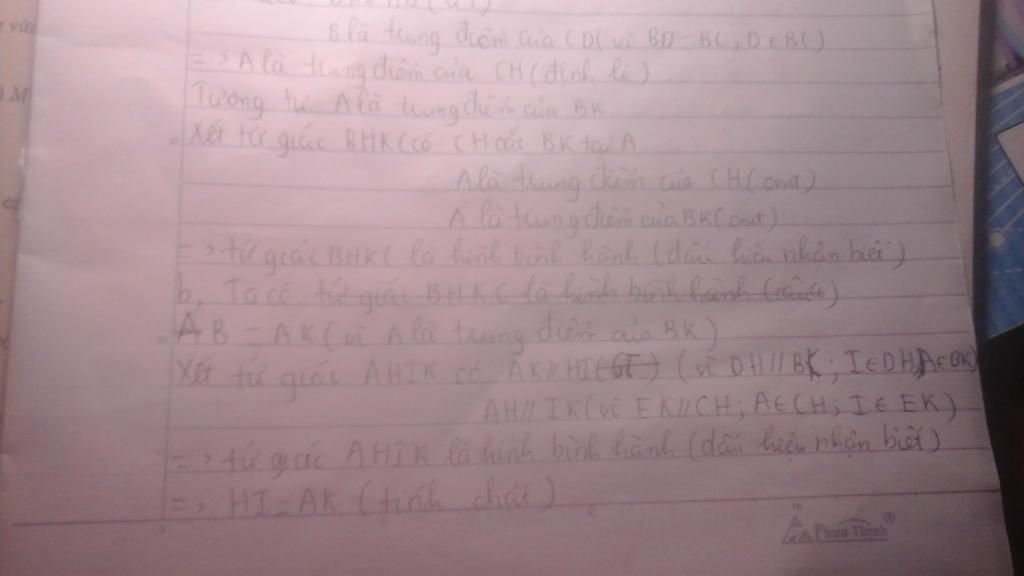 B là trung điểm của CD( vì BD = BC, D ∈ BC)
=> A là trung điểm của CH (định lí)
Tương tự A là trung điểm của BK
Xét tứ giác BHKC có CH cắt BK tại A
A là trung điểm của CH (cmt)
A là trung điểm của BK (cmt)
=> tứ giác BHKC là hình bình hành (dấu hiệu nhận biết)
b, Ta có tứ giác BHKC là hình bình hành (câu a)
AB = AK (vì A là trung điểm của BK)
Xét tứ giác AHIK có AK // HI (GT) (vì DH // BK ; I ∈ DH; A ∈ BK)
AH // IK (vì EK // CH; A ∈ CH; I ∈ EK)
=> tứ giác AHIK là hình bình hành (dấu hiệu nhận biết)
=> HI = AK (tính chất)
Phan Thịnh®